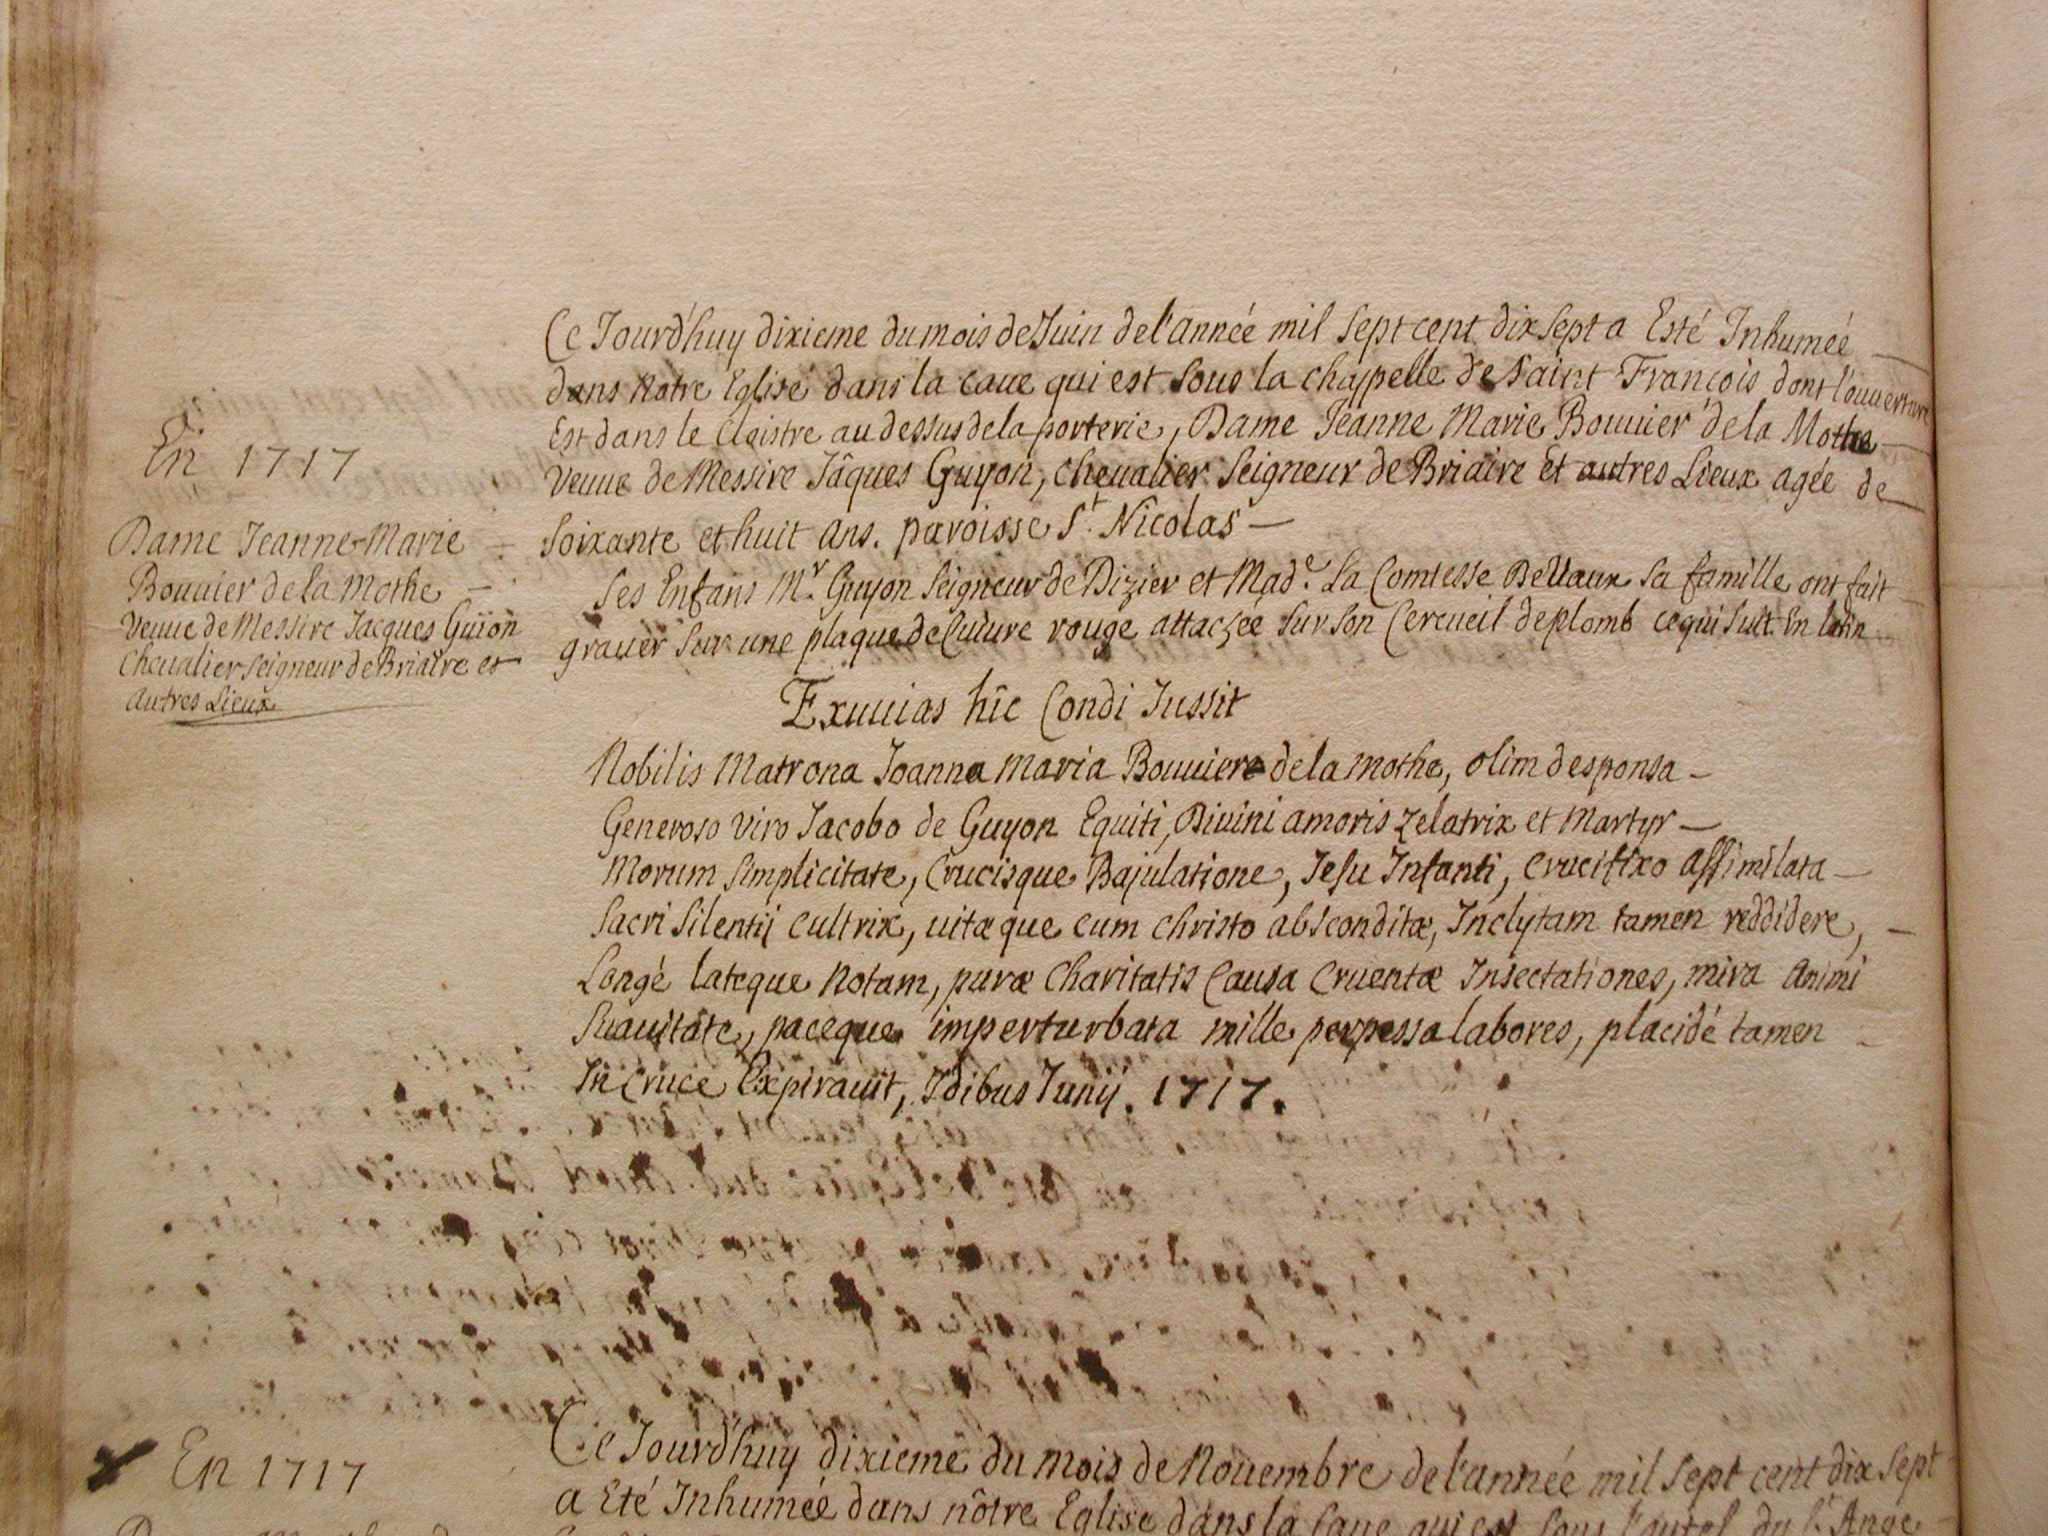 En 1717
Dame Jeanne-Marie
Bouuier de la Mothe
Veuue de Messire Jacques Guïon
Cheualier Seigneur de Briaire et
Autres Lieux
Ce Jourd'huy dixieme du mois de Juin de l'année mil sept cent dix sept a Esté Inhumée
dans notre Eglise dans la Caue qui est sous la chappelle de Saint François dont l'ouuerture
Est dans le Cloistre au dessus de la porterie, Dame Jeanne Marie Bouuier de la Mothe
Veuue de Messire Jâques Guyon, Cheualier Seigneur de Briaire Et autres Lieux agée de
Soixante et huit ans. paroisse St. Nicolas
Ses Enfans Mr. Guyon Seigneur de Dizier et Made. La Comtesse De Uaux sa famille ont fait
grauer Sur une plaque de Cuiure rouge attachée sur son Cercueil de plomb ce qui Suit. En latin
Exuuias hîc Condi Jussit
Nobilis Matrona Joanna Maria Bouuiere de la Mothe, olim desponsa
Generoso viro Jacobo de Guyon Equiti, Diuini amoris Zelatrix et Martyr
Morum Simplicitate, Crucisque Bajulatione, Jesu Infanti, Crucifixo assimilata
Sacri Silentij Cultrix, uitæque cum Christo absconditæ, Inclytam tamen reddidere,
Longé lateque Notam, puræ Charitatis Causa Cruentæ Insectationes, mira Animi
Suauitate, paceque imperturbata mille perpessa labores, placidé tamen
In Cruce Expirauit, Idibus Junij. 1717.
En 1717
Ce Jourd'huy dixieme du Mois de Nouembre de l'année mil sept cent dix sept
a Eté Inhumée dans nôtre Eglise dans la Caue qui est sous l'autel du